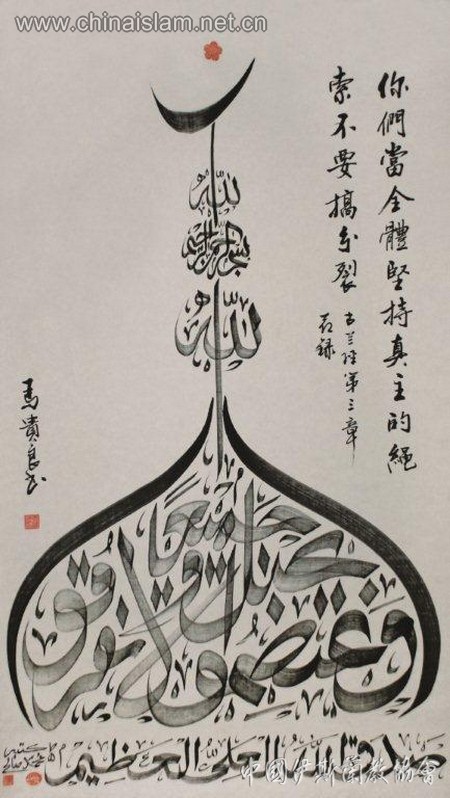 www.chinaislam.net.cn
你們當全體堅持真主的繩
索不要搞分裂
古兰经第三章
节錄
الله
بسم الله الرحمن الرحيم
الله
واعتصموا بحبل الله جميعا ولا تفرقوا
صدق الله العلي العظيم
馬貴良书
中國伊斯蘭教協會